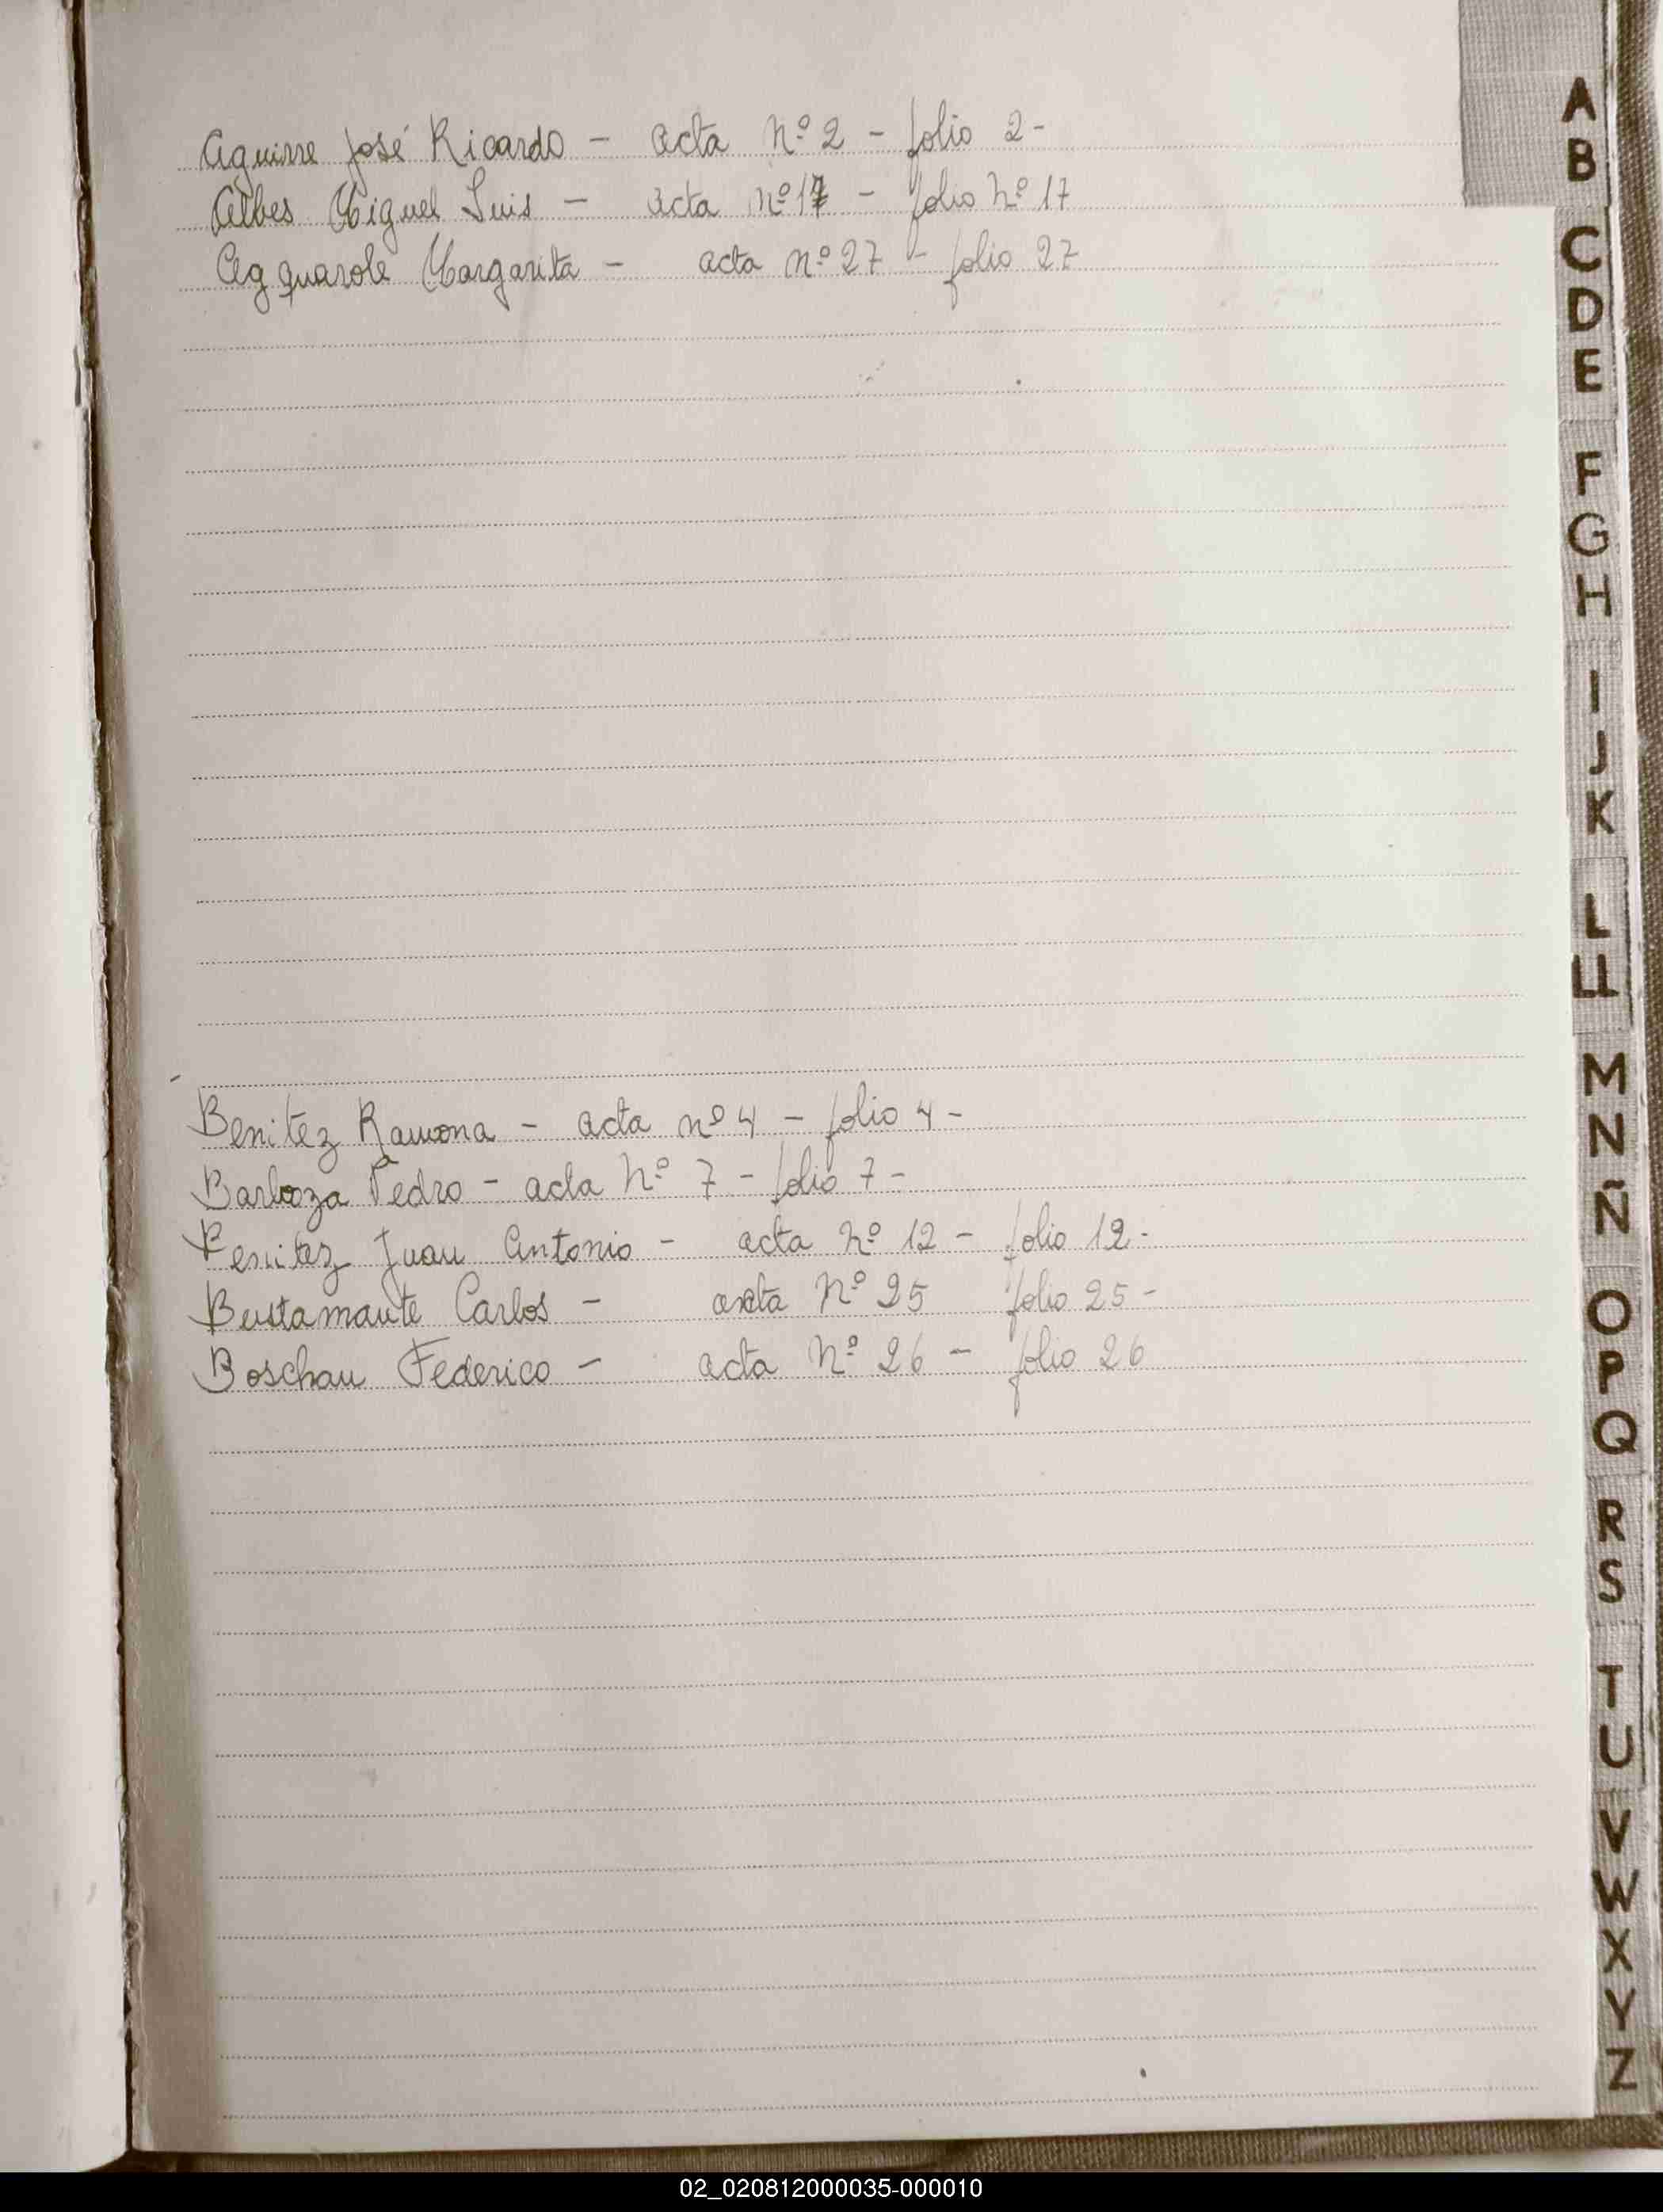 Aguirre José Ricardo - acta nº 2 - folio 2 -
Albes Miguel Luis - acta nº 17 - folio nº 17
Margarita - acta nº 27 - folio 27
Benitez Ramona - acta nº 4 - folio 4 -
Barboza Pedro - acta nº 7 - folio 7 -
Benitez Juan Antonio - acta nº 12 - folio 12 -
Bustamante Carlos - acta nº 25 folio 25 -
Boschau Federico - acta nº 26 - folio 26
A
B
C
D
E
F
G
H
I
J
K
L
LL
M
N
Ñ
O
P
Q
R
S
T
U
V
W
X
Y
Z
02_020812000035-000010